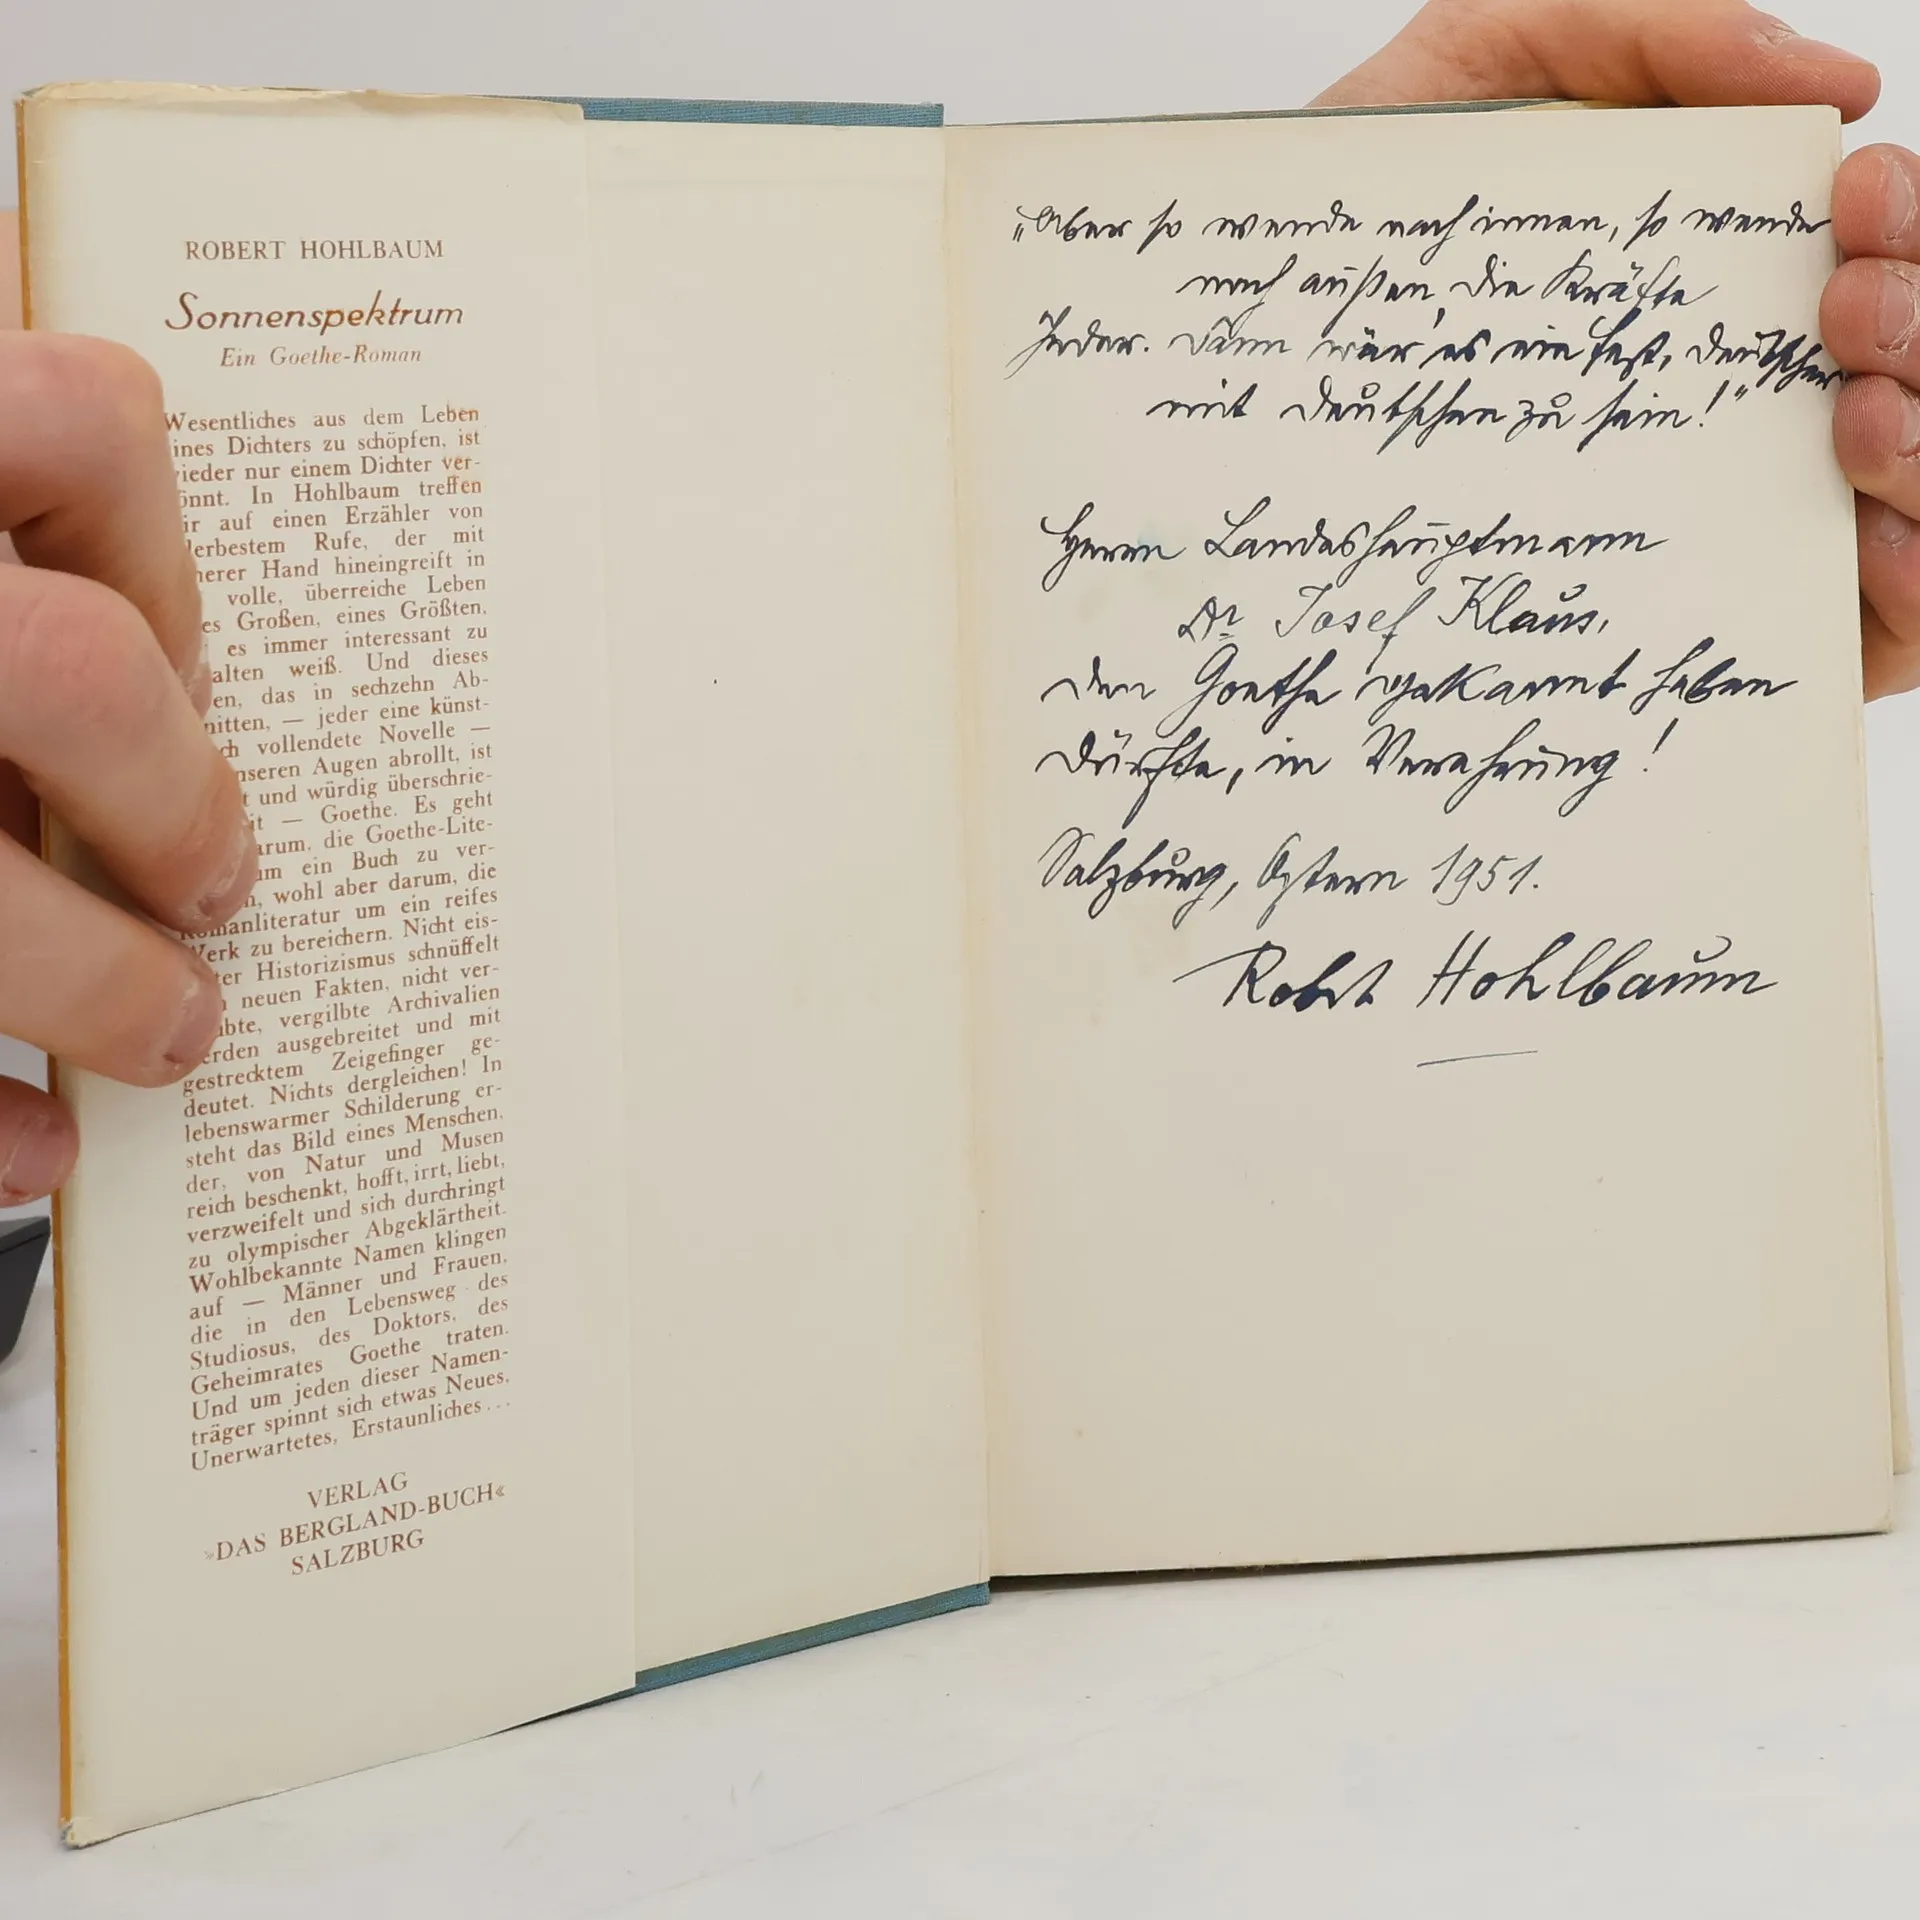 ROBERT HOHLBAUM
Sonnenspektrum
Ein Goethe-Roman
Wesentliches aus dem Leben
ines Dichters zu schöpfen, ist
ieder nur einem Dichter ver-
önnt. In Hohlbaum treffen
ir auf einen Erzähler von
lerbestem Rufe, der mit
herer Hand hineingreift in
volle, überreiche Leben
es Großen, eines Größten,
es immer interessant zu
alten weiß. Und dieses
en, das in sechzehn Ab-
nitten, — jeder eine künst-
ch vollendete Novelle —
nseren Augen abrollt, ist
t und würdig überschrie-
it — Goethe. Es geht
arum, die Goethe-Lite-
um ein Buch zu ver-
n, wohl aber darum, die
Romanliteratur um ein reifes
Werk zu bereichern. Nicht eis-
ter Historizismus schnüffelt
h neuen Fakten, nicht ver-
ubte, vergilbte Archivalien
erden ausgebreitet und mit
gestrecktem Zeigefinger ge-
deutet. Nichts dergleichen! In
lebenswarmer Schilderung er-
steht das Bild eines Menschen,
der, von Natur und Musen
reich beschenkt, hofft, irrt, liebt,
verzweifelt und sich durchringt
zu olympischer Abgeklärtheit.
Wohlbekannte Namen klingen
auf — Männer und Frauen,
die in den Lebensweg des
Studiosus, des Doktors, des
Geheimrates Goethe traten.
Und um jeden dieser Namen-
träger spinnt sich etwas Neues,
Unerwartetes, Erstaunliches...
VERLAG
»DAS BERGLAND-BUCH«
SALZBURG
„Aber so wende nach innen, so wende
nach außen die Kräfte
Jeder. Dann wär es ein Fest, Deutscher
mit Deutschen zu sein!"
Herrn Landeshauptmann
Dr Josef Klaus,
den Goethe gekannt haben
dürfte, in Verehrung!
Salzburg, Ostern 1951.
Robert Hohlbaum